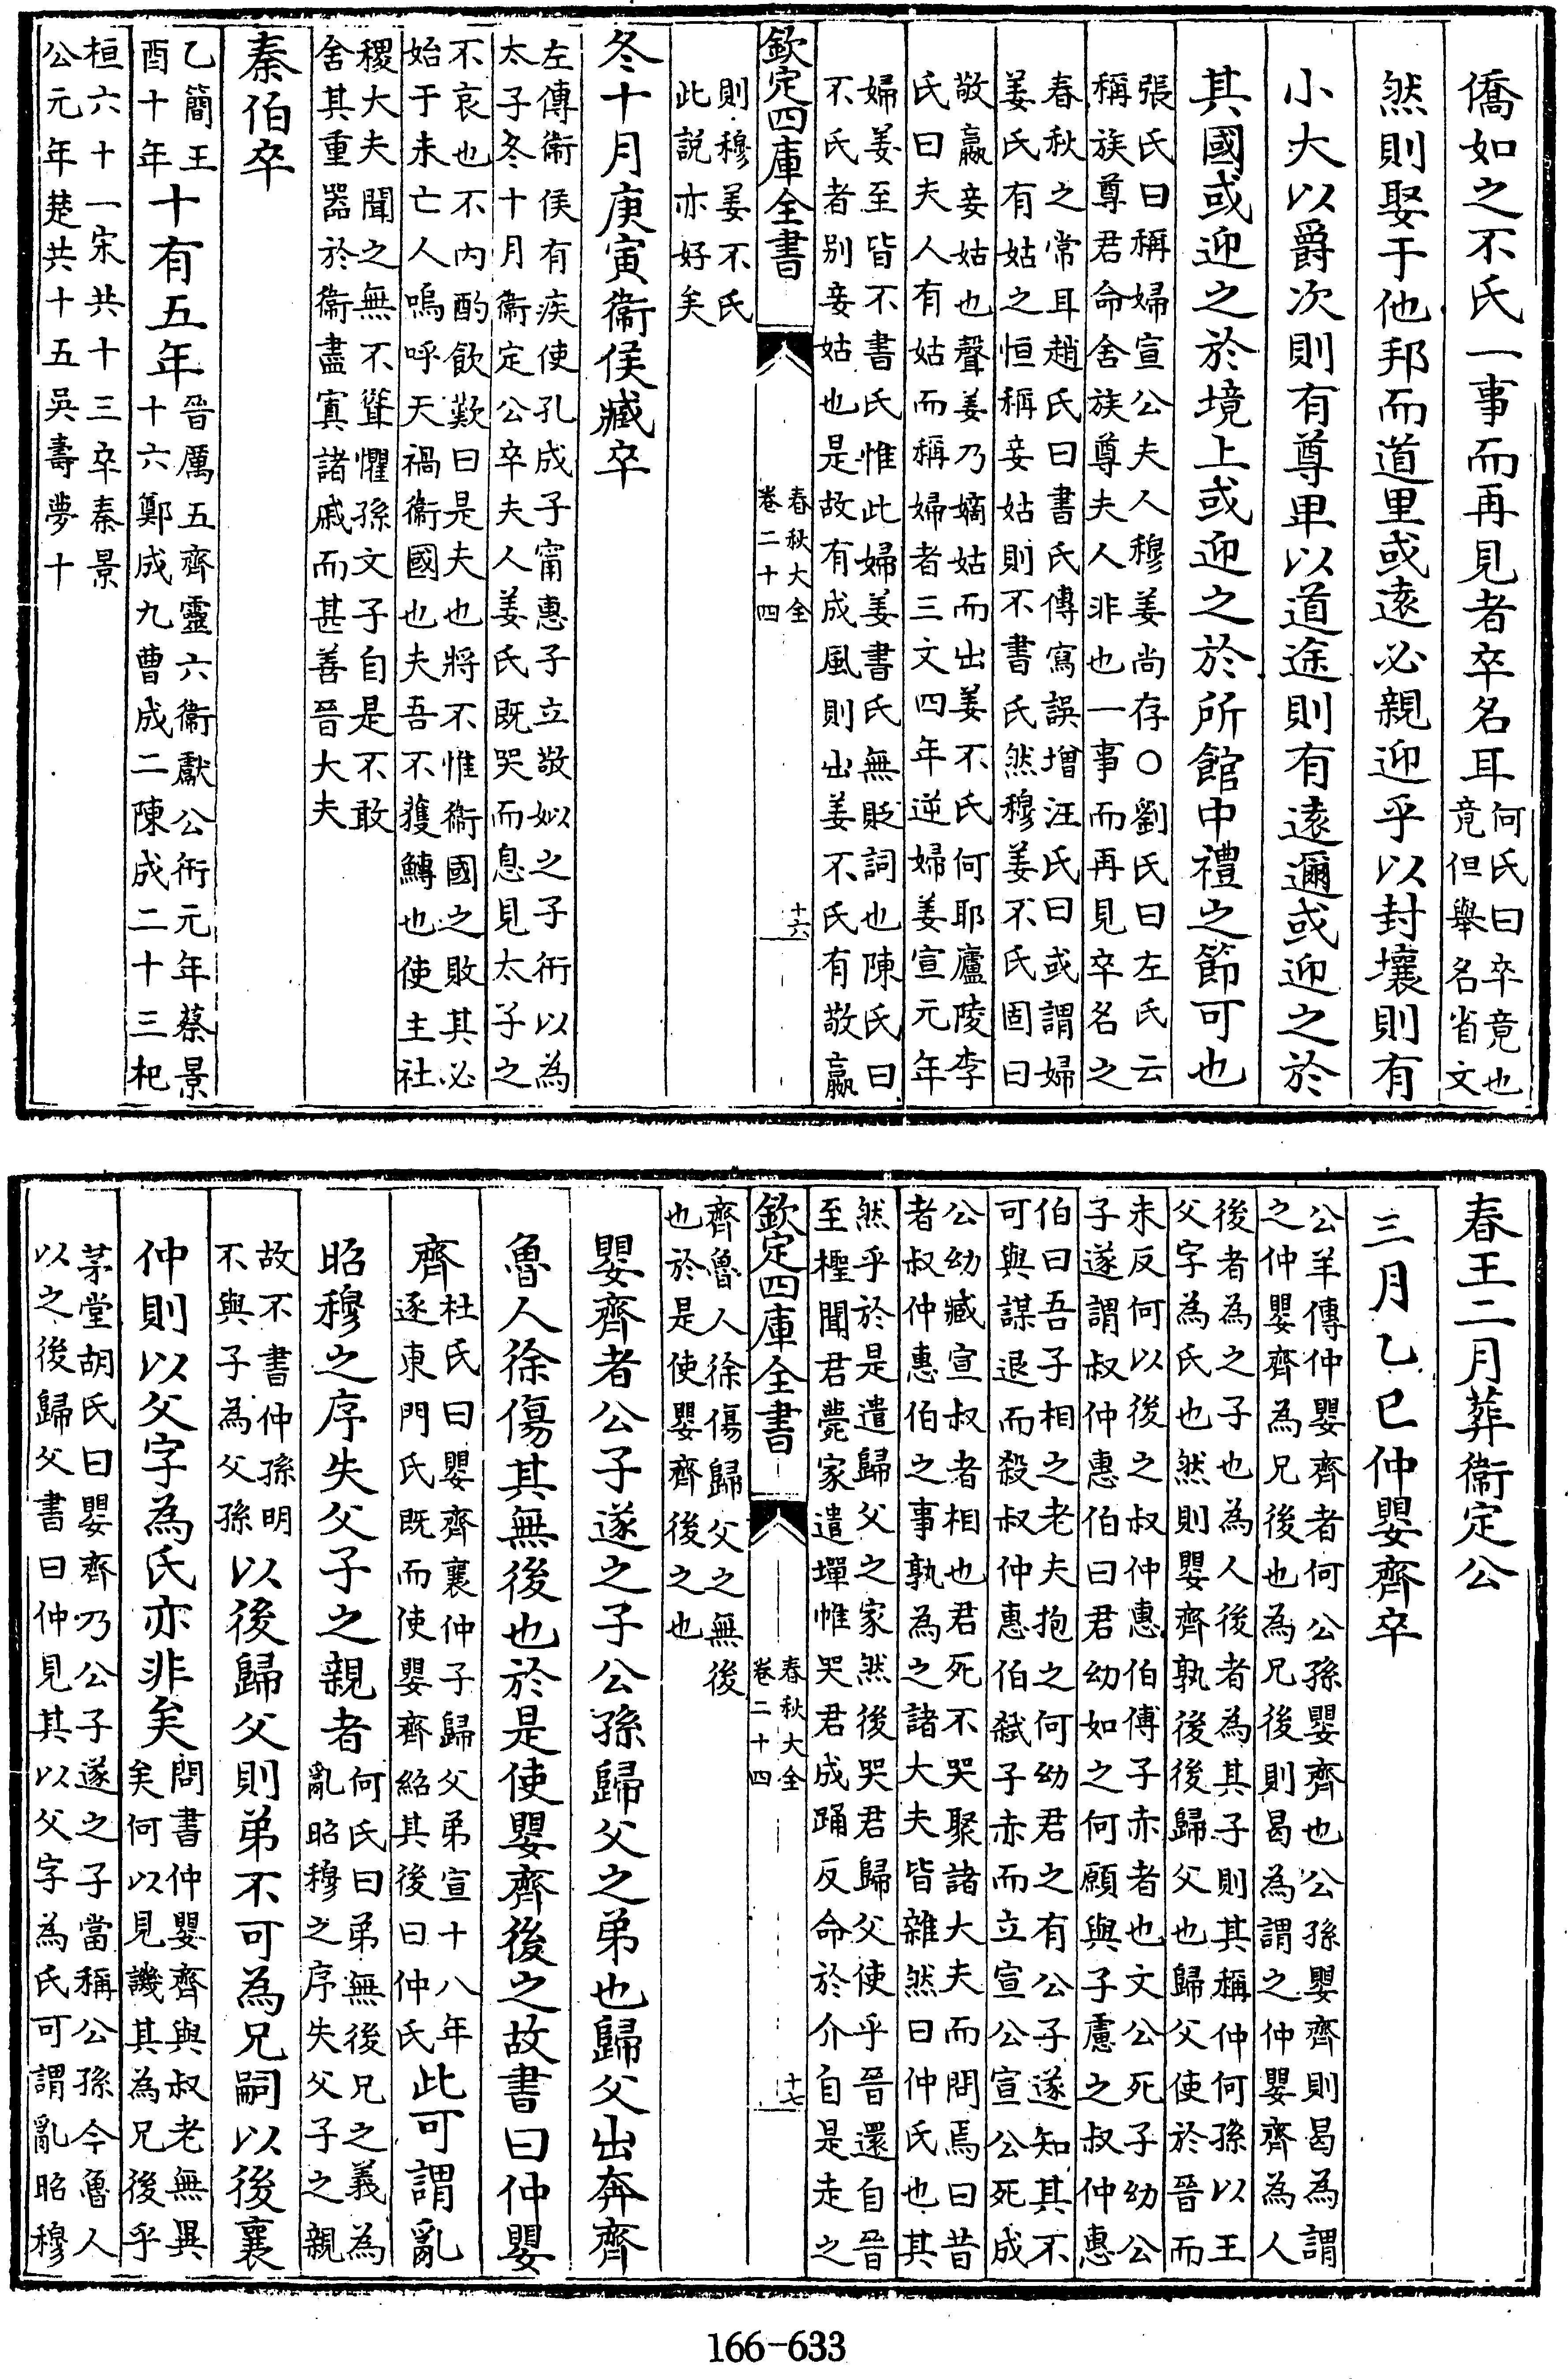 僑如之不氏一事而再見者卒名耳何氏曰卒竟也
竟但舉名省文
然則娶于他邦而道里或遠必親迎乎以封壤則有
小大以爵次則有尊卑以道途則有遠邇或迎之於
其國或迎之於境上或迎之於所館中禮之節可也
張氏曰稱婦宣公夫人穆姜尚存○劉氏曰左氏云
稱族尊君命舍族尊夫人非也一事而再見卒名之
春秋之常耳趙氏曰書氏傳寫誤增汪氏曰或謂婦
姜氏有姑之恒稱妾姑則不書氏然穆姜不氏固曰
敬嬴妾姑也聲姜乃嫡姑而出姜不氏何耶廬陵李
氏曰夫人有姑而稱婦者三文四年逆婦姜宣元年
婦姜至皆不書氏惟此婦姜書氏無貶詞也陳氏曰
不氏者别妾姑也是故有成風則出姜不氏有敬嬴
欽定四庫全書
春秋大全
卷二十四
十六
則穆姜不氏
此説亦好矣
冬十月庚寅衞侯臧卒
左傳衞侯有疾使孔成子甯惠子立敬姒之子衎以為
太子冬十月衞定公卒夫人姜氏既哭而息見太子之
不哀也不內酌飲歎曰是夫也將不惟衞國之敗其必
始于未亡人嗚呼天禍衞國也夫吾不獲鱄也使主社
稷大夫聞之無不聳懼孫文子自是不敢
舍其重器於衞盡寘諸戚而甚善晉大夫
秦伯卒
乙簡王
酉十年
十有五年晉厲五齊靈六衞獻公衎元年蔡景
十六鄭成九曹成二陳成二十三杞
桓六十一宋共十三卒秦景
公元年楚共十五吳壽夢十
春王二月葬衞定公
三月乙巳仲嬰齊卒
公羊傳仲嬰齊者何公孫嬰齊也公孫嬰齊則曷為謂
之仲嬰齊為兄後也為兄後則曷為謂之仲嬰齊為人
後者為之子也為人後者為其子則其稱仲何孫以王
父字為氏也然則嬰齊孰後後歸父也歸父使於晉而
未反何以後之叔仲惠伯傅子赤者也文公死子幼公
子遂謂叔仲惠伯曰君幼如之何願與子慮之叔仲惠
伯曰吾子相之老夫抱之何幼君之有公子遂知其不
可與謀退而殺叔仲惠伯弑子赤而立宣公宣公死成
公幼臧宣叔者相也君死不哭聚諸大夫而問焉曰昔
者叔仲惠伯之事孰為之諸大夫皆雜然曰仲氏也其
然乎於是遣歸父之家然後哭君歸父使乎晉還自晉
至檉聞君薨家遣墠帷哭君成踊反命於介自是走之
欽定四庫全書
春秋大全
卷二十四
十七
齊魯人徐傷歸父之無後
也於是使嬰齊後之也
嬰齊者公子遂之子公孫歸父之弟也歸父出奔齊
魯人徐傷其無後也於是使嬰齊後之故書曰仲嬰
齊杜氏曰嬰齊襄仲子歸父弟宣十八年
逐東門氏既而使嬰齊紹其後曰仲氏
此可謂亂
昭穆之序失父子之親者何氏曰弟無後兄之義為
亂昭穆之序失父子之親
故不書仲孫明
不與子為父孫
以後歸父則弟不可為兄嗣以後襄
仲則以父字為氏亦非矣問書仲嬰齊與叔老無異
矣何以見譏其為兄後乎
茅堂胡氏曰嬰齊乃公子遂之子當稱公孫今魯人
以之後歸父書曰仲見其以父字為氏可謂亂昭穆
166-633